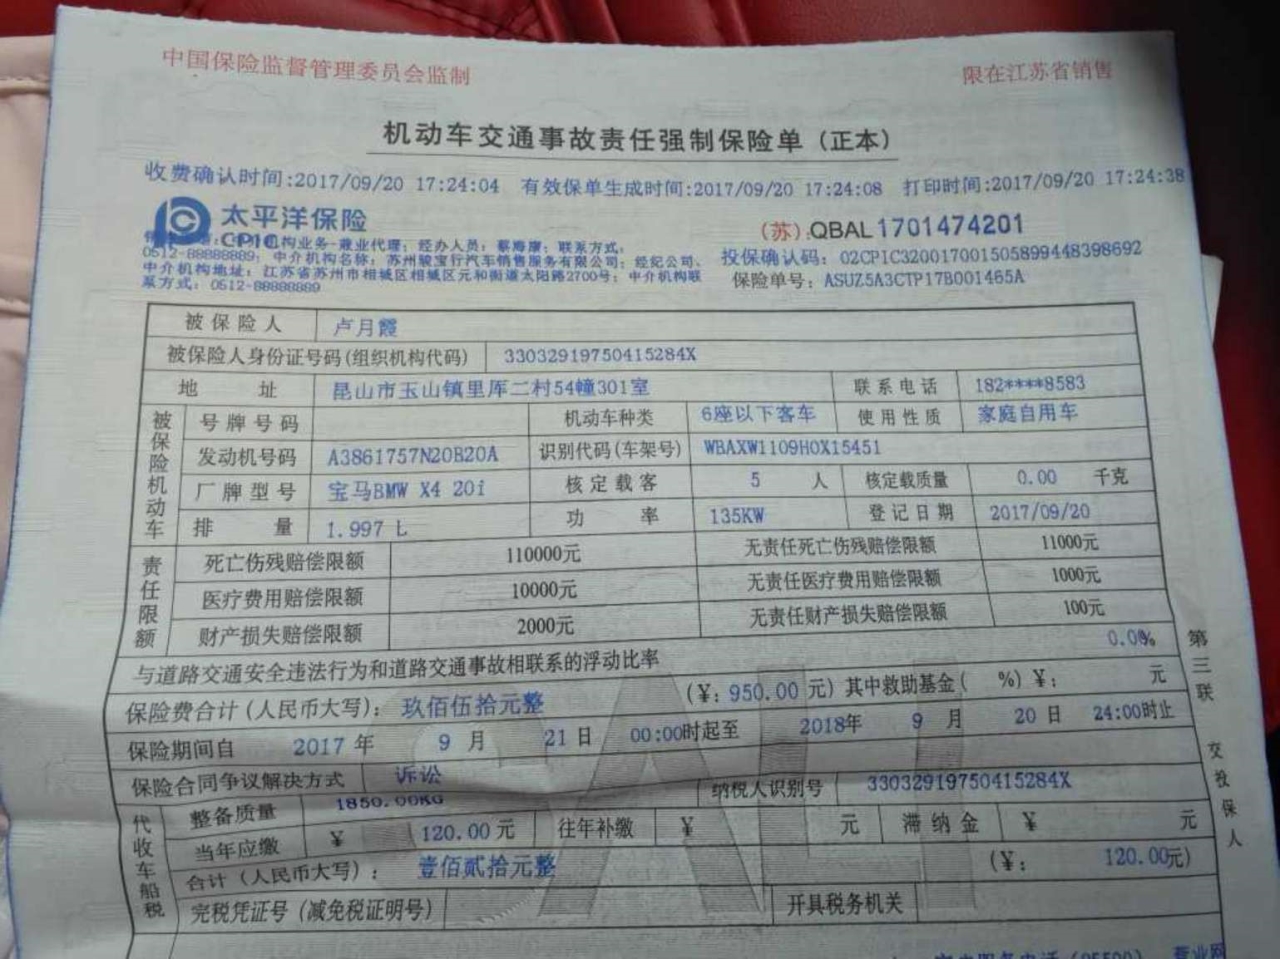 中国保险监督管理委员会监制 限在江苏省销售
机动车交通事故责任强制保险单(正本)
收费确认时间:2017/09/20 17:24:04 有效保单生成时间:2017/09/20 17:24:08 打印时间:2017/09/20 17:24:38
太平洋保险
CPIC
(苏):QBAL 1701474201
构业务-兼业代理; 经办人员: 蔡海康; 联系方式:
0512-88888889; 中介机构名称: 苏州骏宝行汽车销售服务有限公司; 经纪公司、
中介机构地址: 江苏省苏州市相城区相城区元和街道太阳路2700号; 中介机构联
系方式: 0512-88888889
投保确认码: 02CPIC320017001505899448398692
保险单号: ASUZ5A3CTP17B001465A
被保险人 卢月霞
被保险人身份证号码(组织机构代码) 33032919750415284X
地址 昆山市玉山镇里厍二村54幢301室 联系电话 182****8583
被保险机动车
号牌号码 机动车种类 6座以下客车 使用性质 家庭自用车
发动机号码 A3861757N20B20A 识别代码(车架号) WBAXW1109H0X15451
厂牌型号 宝马BMW X4 20i 核定载客 5 人 核定载质量 0.00 千克
排量 1.997 L 功率 135KW 登记日期 2017/09/20
责任限额
死亡伤残赔偿限额 110000元 无责任死亡伤残赔偿限额 11000元
医疗费用赔偿限额 10000元 无责任医疗费用赔偿限额 1000元
财产损失赔偿限额 2000元 无责任财产损失赔偿限额 100元
与道路交通安全违法行为和道路交通事故相联系的浮动比率 0.0%
保险费合计(人民币大写): 玖佰伍拾元整 (¥: 950.00 元) 其中救助基金( %) ¥: 元
保险期间自 2017 年 9 月 21 日 00:00时起至 2018年 9 月 20 日 24:00时止
保险合同争议解决方式 诉讼
代收车船税
整备质量 1850.00KG 纳税人识别号 33032919750415284X
当年应缴 ¥ 120.00 元 往年补缴 ¥ 元 滞纳金 ¥ 元
合计(人民币大写): 壹佰贰拾元整 (¥: 120.00元)
完税凭证号(减免税证明号) 开具税务机关
第三联 交投保人